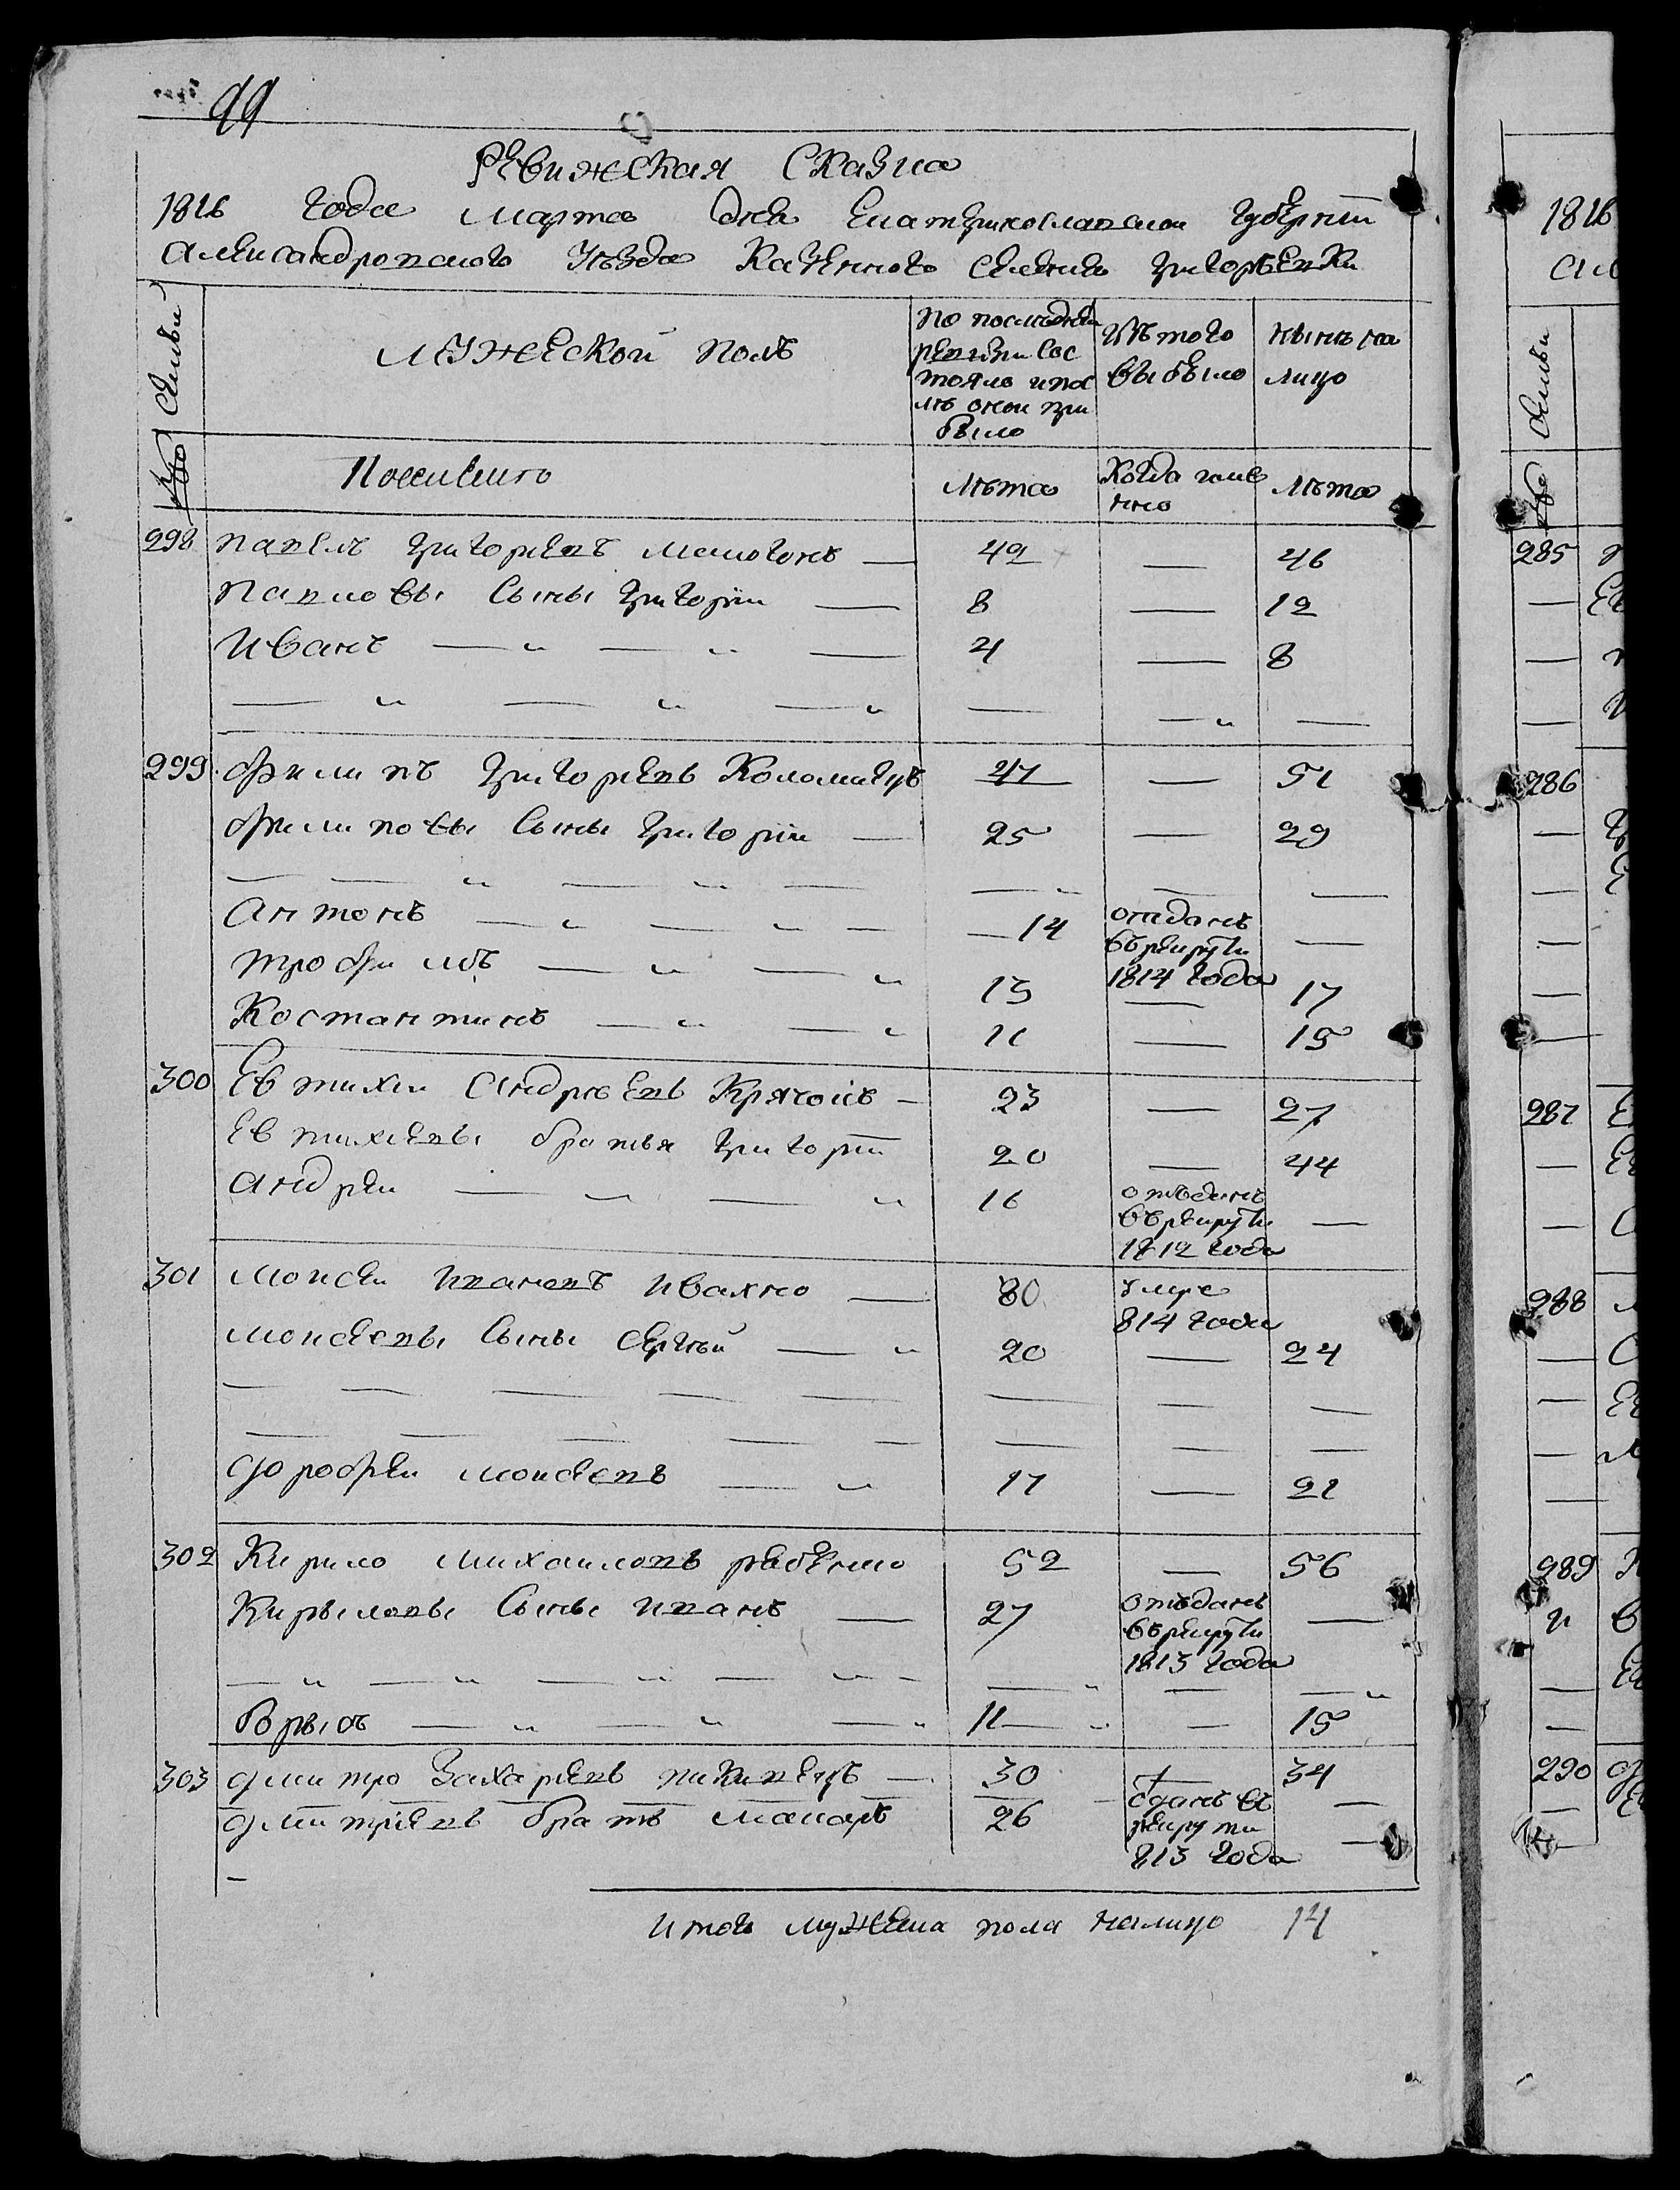 99
Ревижская Сказка
1816 года Марта дня Екатеринославской губернии
Александровского Уезда Казенного селения Григорьевки
№ семьи
Мужеской полъ
По последней ревизии состояло и после оной прибыло
Изъ того выбыло
Ныне на лицо
Лета
Когда именно
Лета
298 Павелъ Григорьевъ 42 — 46
Павловы сыны Григорий — 8 — 12
Иванъ — 〃 — 〃 — 4 — 8
299 Филипъ Григорьевъ Коломиецъ 47 — 51
Филиповы сыны Григорий — 25 — 29
Антонъ — 〃 — 〃 — 14 отданъ въ рекруты 1814 года —
Трофимъ — 〃 — 〃 13 — 17
Костантинъ — 〃 — 〃 11 — 15
300 Евтихий Андреевъ — 23 — 27
Евтихиевы братья Григорий 20 — 44
Андрей — 〃 — 〃 16 отъданъ въ рекруты 1812 года —
301 Моисей Ивановъ Ивахно — 80 умре 814 года
Моисеевы сыны Сергий — 〃 20 — 24
Дорофей Моисеевъ — 〃 17 — 21
302 Кирило Михайловъ Рябенко 52 — 56
Кирыловы сыны Иванъ — 27 отъданъ въ рекруты 1813 года —
Борысъ — 〃 — 〃 — 〃 11 — 15
303 Дмитро Захарьевъ — 30 — 34
Дмитриевъ братъ Макаръ 26 сданъ въ рекруты 813 года —
Итого мужеска пола налицо 14
1816
семьи
285
286
287
288
289
290